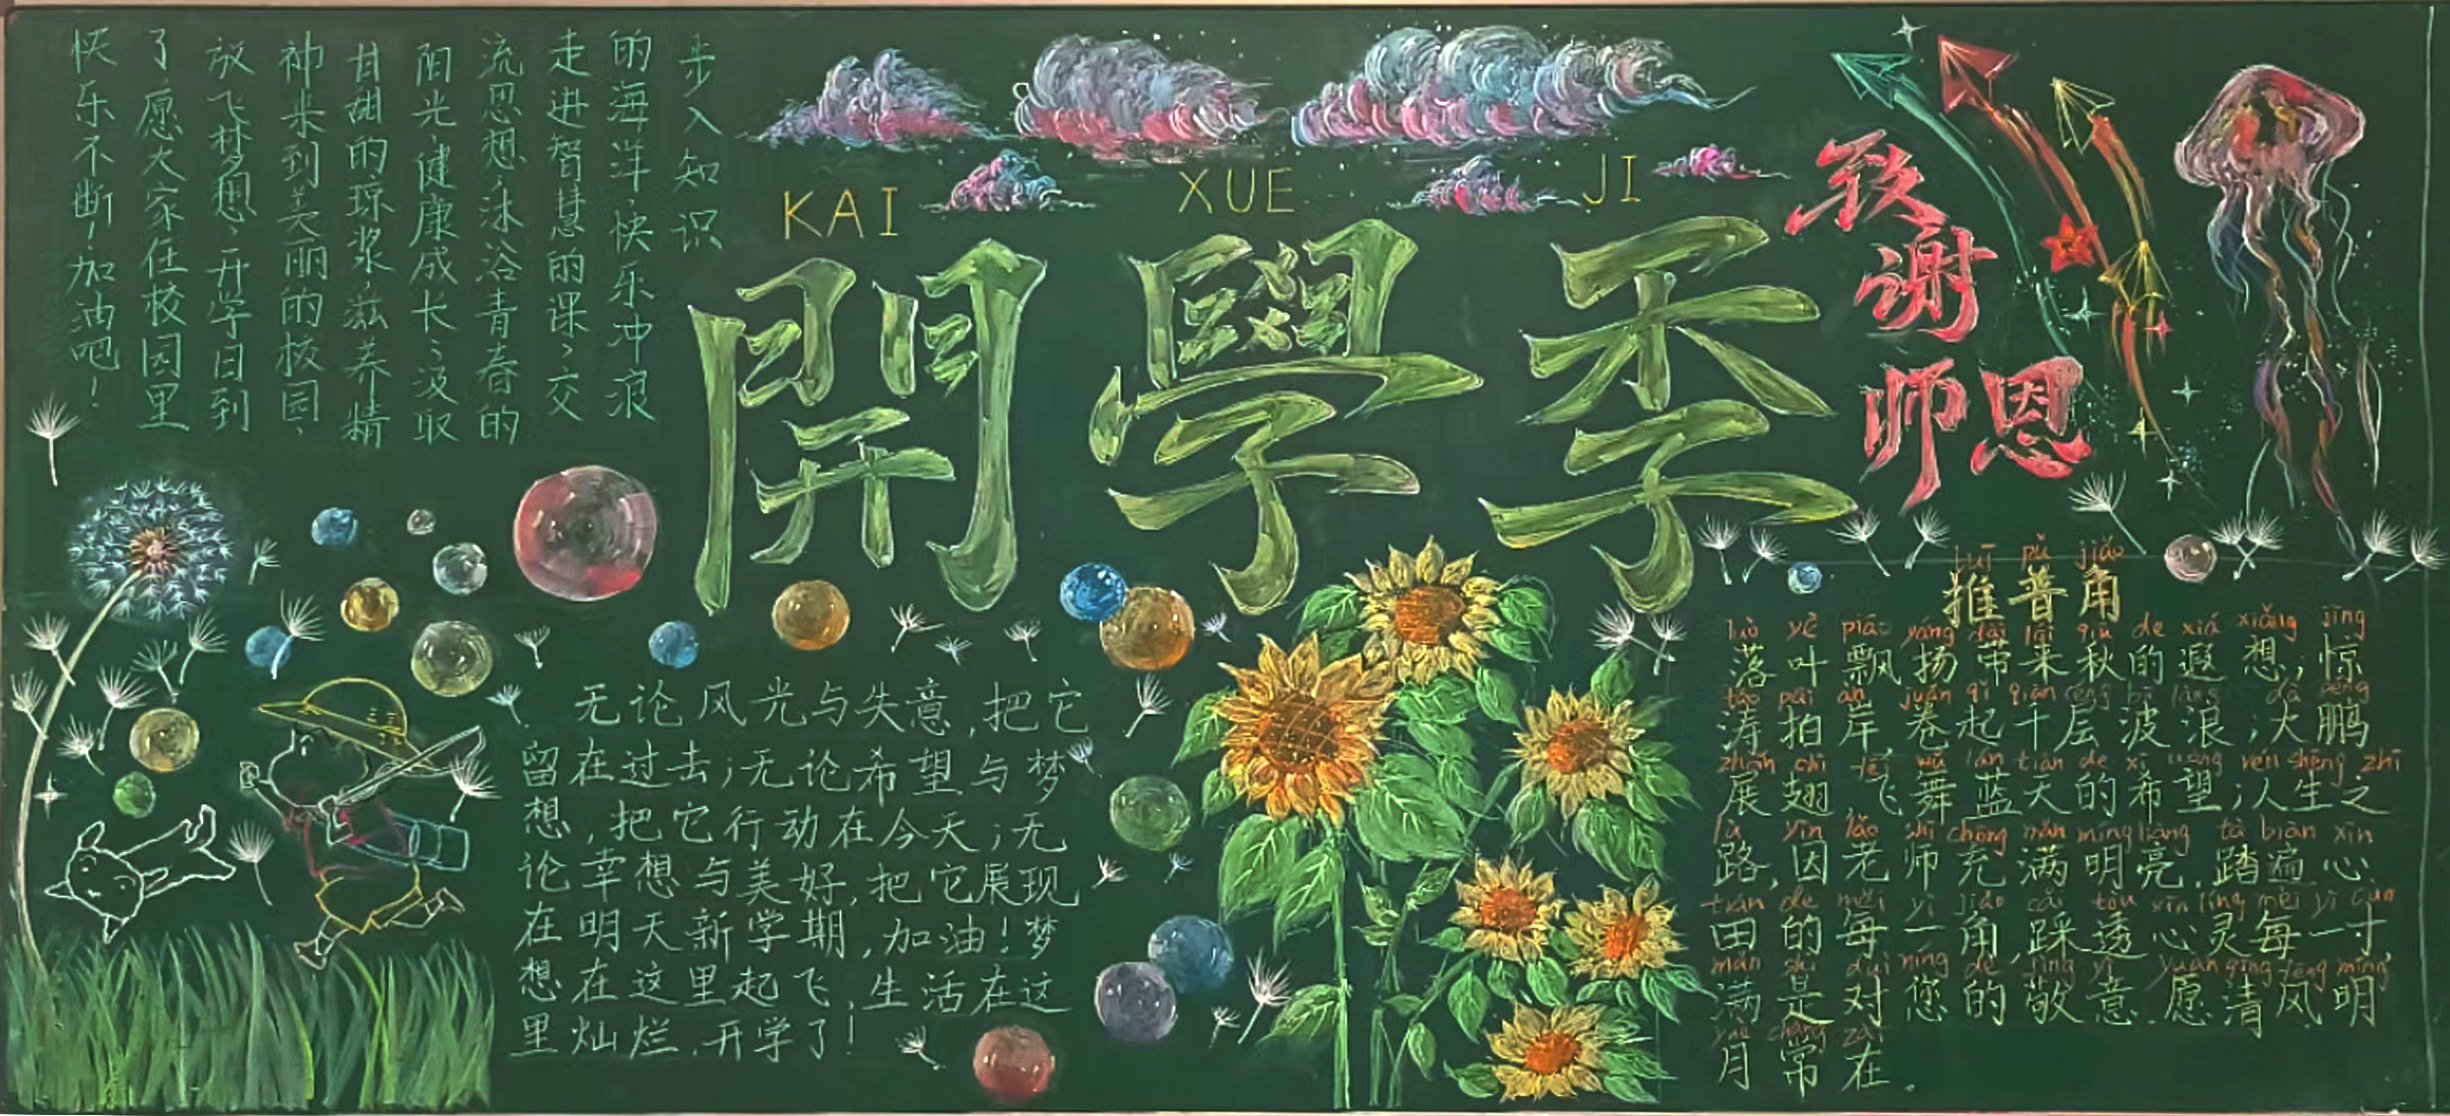 步入知识
的海洋,快乐冲浪
走进智慧的课、交
流思想,沐浴青春的
阳光,健康成长;汲取
甘甜的琼浆,滋养精
神来到美丽的校园,
放飞梦想,开学日到
了愿大家在校园里
快乐不断!加油吧!
KAI XUE JI
開學季
致
谢
师恩
无论风光与失意,把它
留在过去;无论希望与梦
想,把它行动在今天;无
论幸想与美好,把它展现
在明天新学期,加油!梦
想在这里起飞,生活在这
里灿烂.开学了!
tuī pǔ jiǎo
推普角
luò yè piāo yáng dài lái qiū de xiá xiǎng jīng
落叶飘扬带来秋的遐想,惊
tāo pāi àn juǎn qǐ qiān céng bō làng dà péng
涛拍岸,卷起千层波浪;大鹏
zhǎn chì fēi wǔ lán tiān de xī wàng rén shēng zhī
展翅飞舞蓝天的希望;人生之
lù yīn lǎo shī chōng mǎn míng liàng tà biàn xīn
路,因老师充满明亮.踏遍心
tián de měi yī jiǎo cǎi tòu xīn líng měi yī cùn
田的每一角,踩透心灵每一寸,
mǎn shì duì nín de jìng yì yuàn qīng fēng míng
满是对您的敬意.愿清风明
yuè cháng zài
月常在.